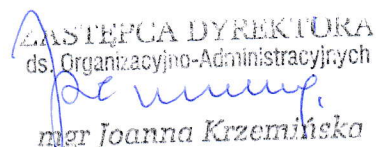 ZASTĘPCA DYREKTORA
ds. Organizacyjno-Administracyjnych
mgr Joanna Krzemińska